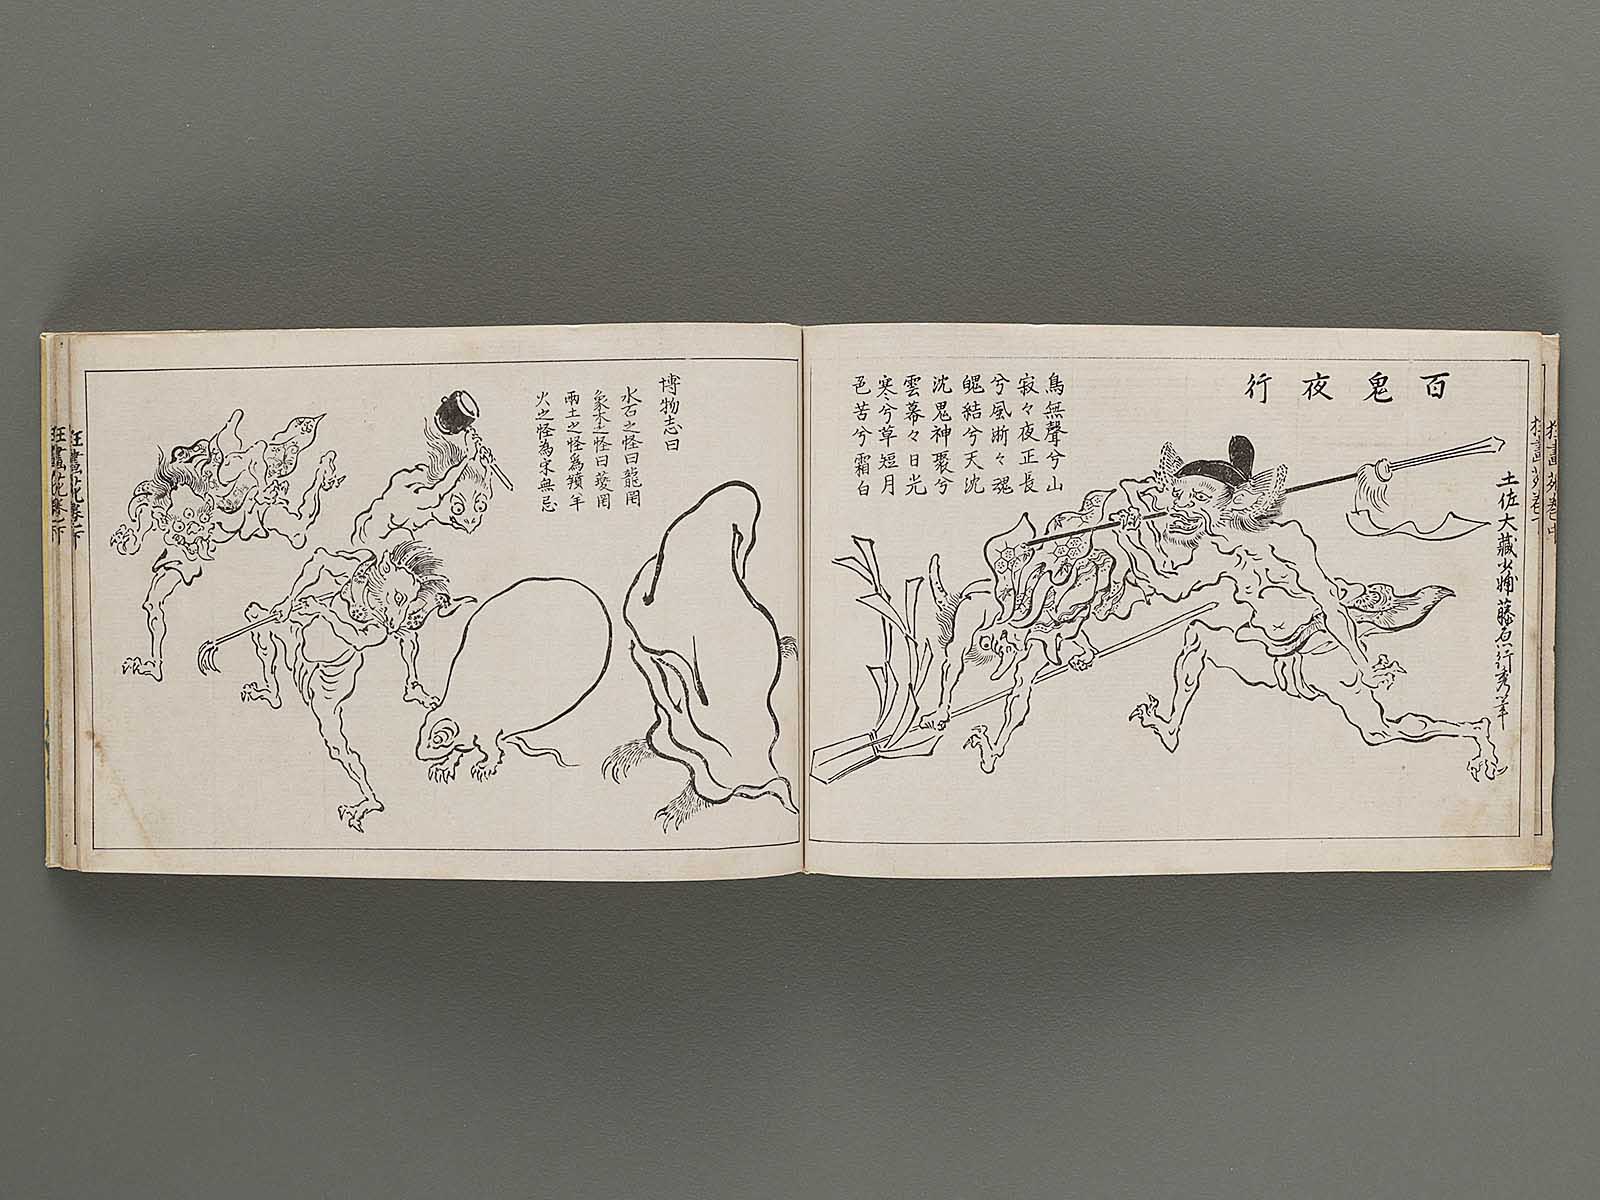 百鬼夜行
土佐大藏少輔藤原行秀筆
鳥無聲兮山
寂々夜正長
兮風淅々魂
魄結兮天沈
沈鬼神聚兮
雲幕々日光
寒兮草短月
色苦兮霜白
博物志曰
水石之怪曰龍罔
象木之怪曰䕫罔
兩土之怪為羵羊
火之怪為宋無忌
狂畫苑卷
狂畫苑卷